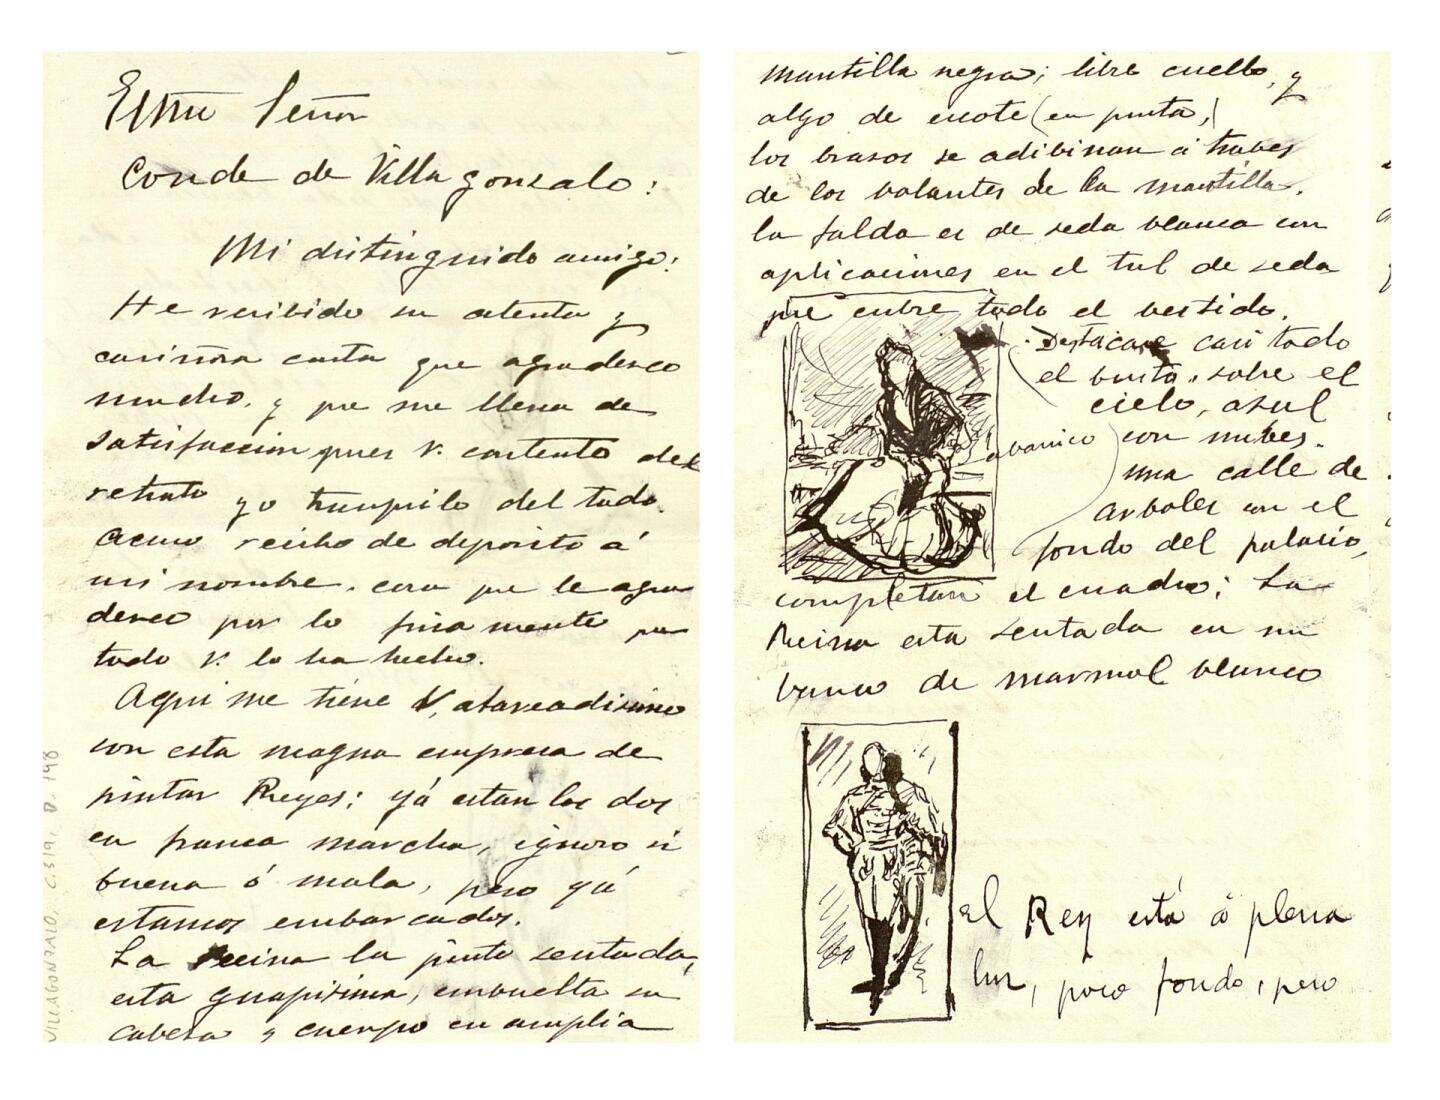 Exmo Señor
Conde de Villagonzalo:
Mi distinguido amigo:
He recibido su atenta y
cariñosa carta que agradesco
mucho, y que me llena de
satisfaccion pues V. contento del
retrato yo tranquilo del todo.
Acuso recibo de deposito á
mi nombre, cosa que le agra
desco por lo finamente que
todo V. lo ha hecho.
Aqui me tiene V, atareadisimo
con esta magna empresa de
pintar Reyes; yá estan los dos
en franca marcha, ignoro si
buena ó mala, pero yá
estamos embarcados.
La Reina la pinto sentada,
esta guapisima, embuelta su
cabesa y cuerpo en amplia
mantilla negra; libre cuello, y
algo de escote (en punta,)
los brasos se adibinan á trabes
de los bolantes de la mantilla.
la falda es de seda blanca con
aplicaciones en el tul de seda
que cubre todo el bestido.
Destacase casi todo
el busto sobre el
cielo, asul
con nubes.
abanico
una calle de
arboles con el
fondo del palacio,
completan el cuadro; La
Reina esta sentada en un
banco de marmol blanco
el Rey está á plena
luz, poco fondo, pero
VILLAGONZALO, C.319, D. 198